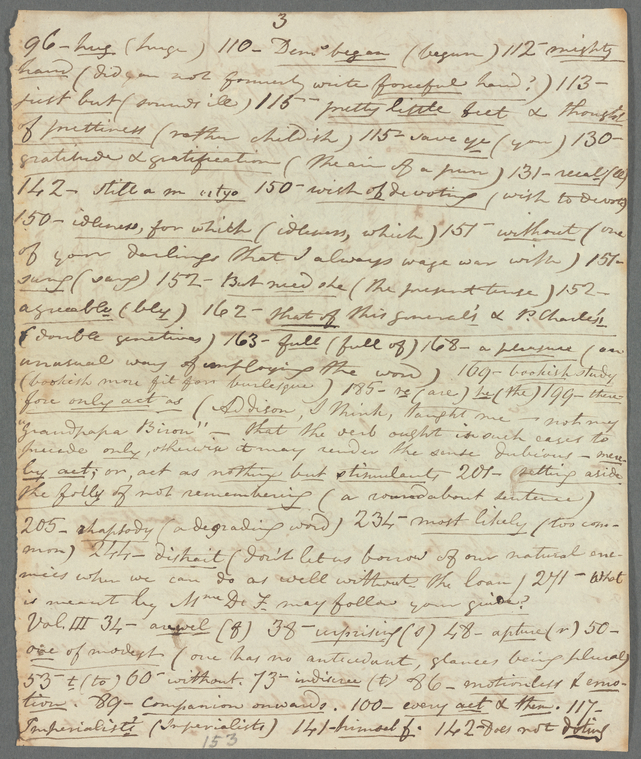 3
96 - hug (huge) 110 - Dem[s] began (begun) 112 mighty
hand (did you not formerly write forceful hand?) 113 -
just but (sounds ill) 115 - pretty little feet & thought
of prettiness (rather childish) 115 - save ye (you) 130 -
gratitude & gratification (the air of a pun) 131 - recal (ll)
142 - still a m 150 - wish of devoting (wish to devote)
150 - idleness, for which (idleness, which) 151 - without (one
of your darlings that I always wage war with) 151 -
sung (sang) 152 - But need she (the present tense) 152 -
agreeable (bly) 162 - that of this general's & P. Charles's
(double genitives) 163 - full (full of) 168 - a pleasure (an
unusual way of employing the word) 169 - bookish study
(bookish more fit for burlesque) 185 - rs (are) he (the) 199 - there-
fore only act as (Addison, I think, taught me - not my
"Grandpapa Biron" - that the verb ought in such cases to
precede only, otherwise it may render the sense dubious - mere-
ly act; or, act as nothing but stimulants 201 - setting aside
the folly of not remembering (a roundabout sentence)
205 - rhapsody (a degrading word) 234 - most likely (too com-
mon) 244 - distrait (don't let us borrow of our natural ene-
mies when we can do as well without the loan) 271 - What
is meant by Mme De F. may follow your guide?
Vol. III 34 - (f) 38 - surprising (s) 48 - apture (r) 50 -
one of modest (one has no antecedent, glances being plural)
53 - t (to) 60 - without. 73 - indiscree (t) 86 - motionless & emo-
tion. 89 - companion onwards. 100 - every act & then. 117 -
Imperialist's (Imperialists) 141 - himself f. 142 - Does not doting
153